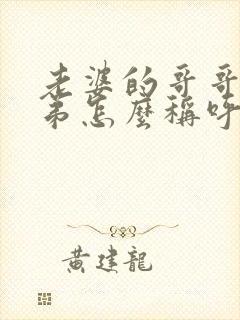 老婆的哥哥
弟怎麼稱呼
黄建龍